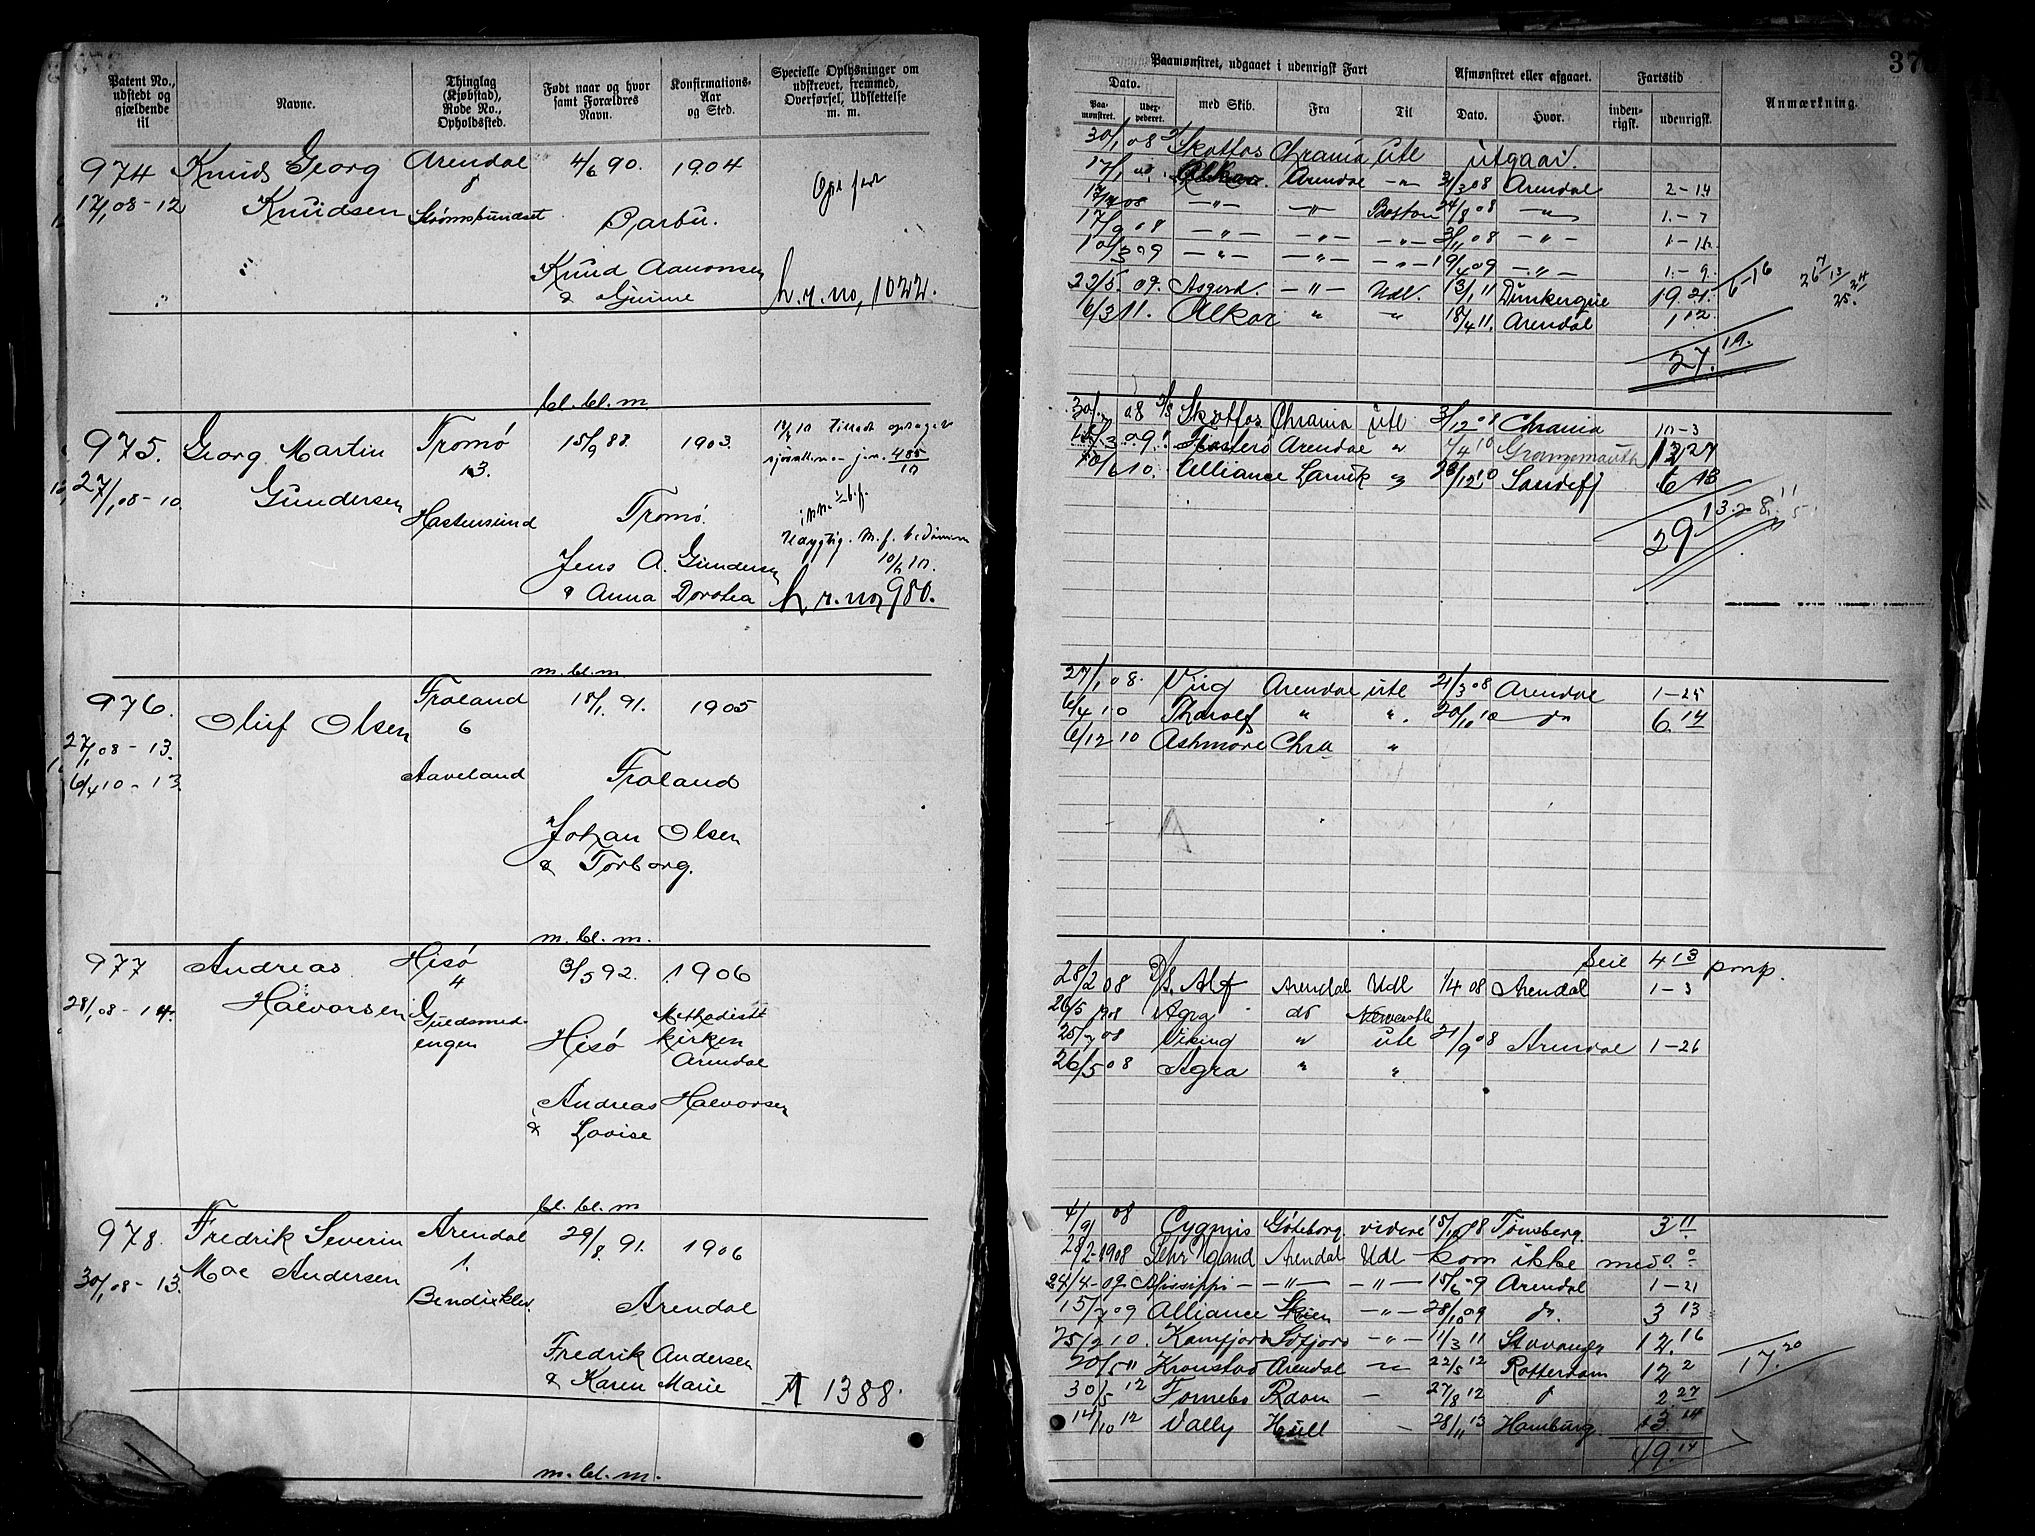 Patent No., udstedt og gjældende til
Navne.
Thinglag (Kjøbstad), Rode No., Opholdssted.
Født naar og hvor samt Forældres Navn.
Konfirmations-Aar og Sted.
Specielle Oplysninger om udskrevet, fremmed, Overførsel, Udslettelse m. m.
974 Knud Georg Arendal 4/6 90. 1904
8
17/1 08 - 12 Knudsen Strømsbundset Barbu.
Knud Aanonsen
& Gurine h.r.no, 1022.
bl. bl. m
975. Georg Martin Tromø 15/9 88. 1903.
13.
27/1 08 - 10 Gundersen Hastensund Tromø.
Jens A. Gundersen 10/6 10.
& Anna Dorotea h r. no, 980.
m. bl. m
976. Oluf Olsen Froland 18/1 91. 1905
6
27/1 08 - 13.
6/4 10 - 13 Aaveland Froland
Johan Olsen
& Torborg.
m. bl. m.
977 Andreas Hisø 3/5 92. 1906
4
28/1 08 - 14. Halvorsen Guldsmed-engen Hisø Methodist kirken Arendal
Andreas Halvorsen
& Lovise
bl. bl. m
978. Fredrik Severin Arendal 29/8 91. 1906
1.
30/1 08 - 13. Moe Andersen Bendiksklev Arendal
Fredrik Andersen
& Karen Marie A 1388.
m. bl. m.
37
Paamønstret, udgaaet i udenrigsk Fart
Afmønstret eller afgaaet.
Fartstid
Anmærkning.
Dato.
Paamønstret.
med Skib.
Fra
Til
Dato.
Hvor.
indenrigsk.
udenrigsk.
30/1 08 Skotfos Chrania utl utgaar.
17/1 Alkor. Arendal -"- 31/3 08 Arendal 2-14
-"- -"- Boston 24/8 08 -"- 1-7
17/9 08 -"- -"- -"- 3/11 08 -"- 1-16
10/3 09 -"- -"- -"- 19/4 09 -"- 1-9.
22/5. 09. Asgerd. -"- Udl. 13/1 11 Dunkerque 19 21. 6-16
6/3 11. Alkor " -"- 18/4 11. Arendal 1 12
27. 19.
30/1 08 Skotfos Chrania utl 3/12 08 Chrania 10-3
09 Arendal " 7/4 10 Grangemouth 12 27
10/6 10. Alliance Larvik " 23/12 10 Sandefj 6 13
29 13
27/1 08. Viig Arendal utl 21/3 08 Arendal 1-25
6/4 10 Tharalf " ". 20/10 10 do 6 14
6/12 10 Ashmore Chra "
seie 4 13 pmp.
28/2 08 D/s. Alf Arendal Udl 1/4 08 Arendal 1-3
26/5 1908 Agra do Newcastle
25/7 08 Viking " utl 21/9 08 Arendal 1-26
26/5 08 Agra " "
4/9 08 Cygnus Göteborg videre 15/12 08 Tønsberg. 3 11
29/2-1908 Arendal Udl kom ikke med 0. 0
24/4-09 Missisippi -"- -"- 15/6 09 Arendal 1-21
15/7 09 Alliance Skien -"- 28/10 09 do 3 13
25/2 10. Kamfjord -"- 11/3 11 Stavanger 12. 16
20/5 11 Kronstad Arendal -"- 22/5 12 Rotterdam 12 2 17. 20
30/5 12 Fornebo - 27/8 12 2. 27
14/10 12 Vally Hull - 28/11 13 Hamburg. 13. 14
49. 14